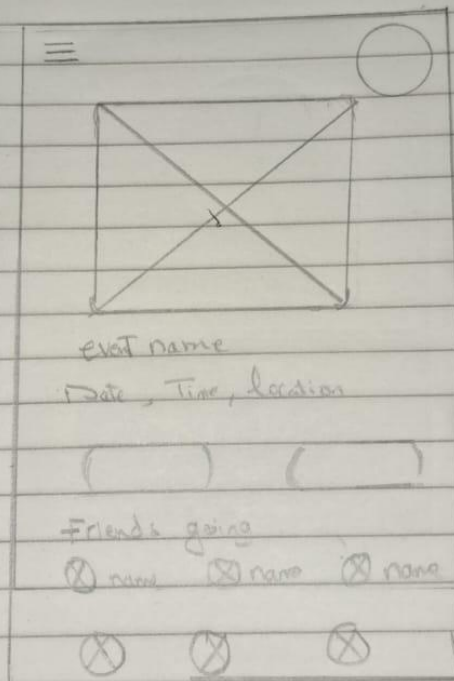 event name
Date, Time, location
Friends going
name name name